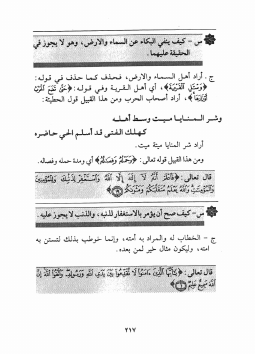 س - كيف ينفي البكاء عن السماء والأرض، وهو لا يجوز في
الحقيقة عليهما.
ج . أراد أهل السماء والارض، فحذف كما حذف في قوله:
﴿وَسْئَلِ الْقَرْيَةَ﴾، أي أهل القرية وفي قوله: ﴿حَتَّىٰ تَضَعَ الْحَرْبُ
أَوْزَارَهَا﴾، أراد أصحاب الحرب ومن هذا القبيل قول الحطيئة:
وشر المنايا ميت وسط أهله
كهلك الفتى قد أسلم الحي حاضره
أراد شر المنايا ميتة ميت.
ومن هذا القبيل قوله تعالى: ﴿وَحَمْلُهُ وَفِصَالُهُ﴾ أي ومدة حمله وفصاله.
قال تعالى: ﴿فَاعْلَمْ أَنَّهُ لَا إِلَٰهَ إِلَّا اللَّهُ وَاسْتَغْفِرْ لِذَنْبِكَ وَلِلْمُؤْمِنِينَ
وَالْمُؤْمِنَاتِ وَاللَّهُ يَعْلَمُ مُتَقَلَّبَكُمْ وَمَثْوَاكُمْ﴾
س - كيف صح أن يؤمر بالاستغفار لذنبه، والذنب لا يجوز عليه.
ج - الخطاب له والمراد به أمته، وإنما خوطب بذلك لتستن به
امته، وليكون مثال خير لمن بعده.
قال تعالى: ﴿يَا أَيُّهَا الَّذِينَ آمَنُوا لَا تُقَدِّمُوا بَيْنَ يَدَيِ اللَّهِ وَرَسُولِهِ وَاتَّقُوا اللَّهَ إِنَّ
اللَّهَ سَمِيعٌ عَلِيمٌ﴾
٢١٧